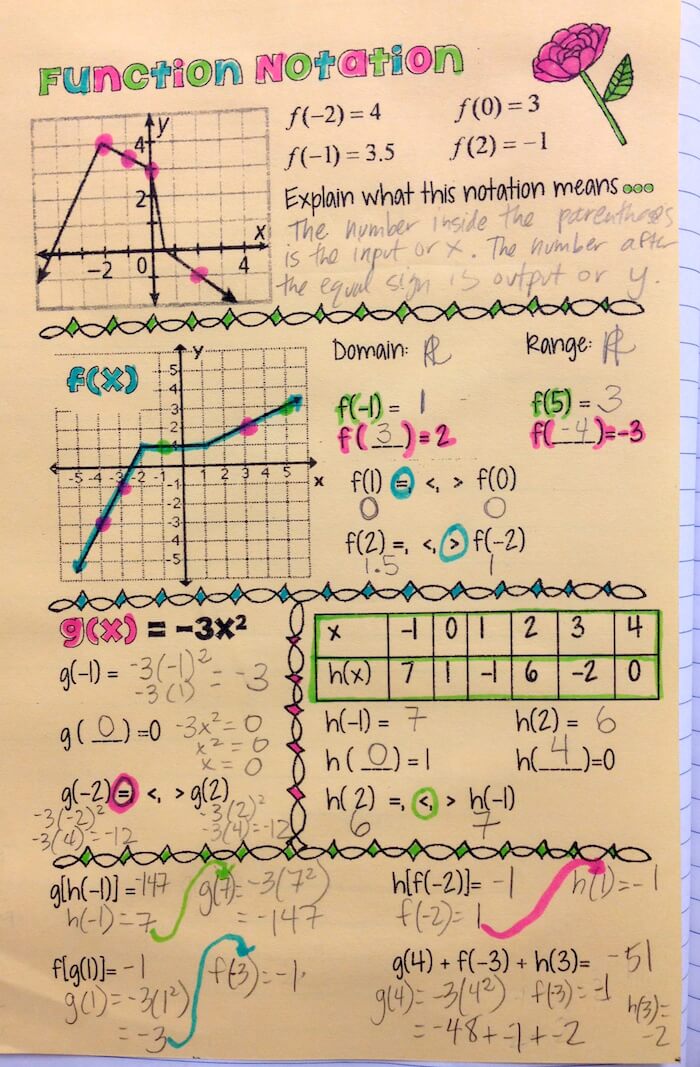 Function Notation
f(−2) = 4 f(0) = 3
f(−1) = 3.5 f(2) = −1
Explain what this notation means...
The number inside the parentheses
is the input or x. The number after
the equal sign is output or y.
y
4
2
x
−2 0 4
f(x)
y
5
4
3
2
1
-5 -4 -3 -2 -1 1 2 3 4 5
x
-1
-2
-3
-4
-5
Domain: ℝ Range: ℝ
f(-1) = 1 f(5) = 3
f( 3 ) = 2 f( -4 )=-3
f(1) =, <, > f(0)
0 0
f(2) =, <, > f(-2)
1.5 1
g(x) = -3x²
g(-1) = -3(-1)² = -3
-3(1)
g( 0 ) =0 -3x² = 0
x² = 0
x = 0
g(-2) = <, > g(2)
-3(-2)² -3(2)²
-3(4) = -12 -3(4) = -12
x -1 0 1 2 3 4
h(x) 7 1 -1 6 -2 0
h(-1) = 7 h(2) = 6
h ( 0 ) = 1 h( 4 )=0
h( 2 ) =, <, > h(-1)
6 7
g[h(-1)] = -147 g(7) = -3(7²)
h(-1) = 7 = -147
h[f(-2)]= -1 h(1) = -1
f(-2) = 1
f[g(1)]= -1 f(-3) = -1
g(1) = -3(1²)
= -3
g(4) + f(-3) + h(3)= -51
g(4) = -3(4²) f(-3) = -1 h(3) = -2
= -48 + -1 + -2